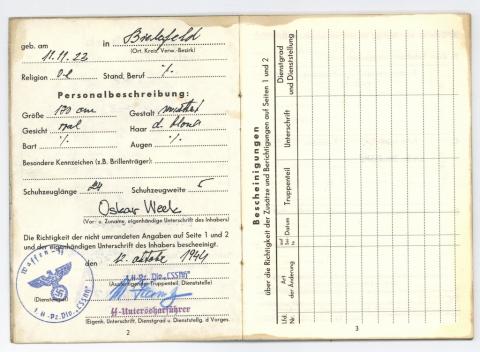 geb. am 11.11.22 in Bielefeld
(Ort, Kreis, Verw.-Bezirk)
Religion Stand, Beruf ·/.
Personalbeschreibung:
Größe 170 cm Gestalt mittel
Gesicht oval Haar d. blond
Bart ·/. Augen ·/.
Besondere Kennzeichen (z.B. Brillenträger):
Schuhzeuglänge Schuhzeugweite 5
Oskar Week
(Vor- u. Zuname, eigenhändige Unterschrift des Inhabers)
Die Richtigkeit der nicht umrandeten Angaben auf Seite 1 und 2
und der eigenhändigen Unterschrift des Inhabers bescheinigt.
den 12. Oktober 1944
(Ausfertigender Truppenteil, Dienststelle)
(Dienstsiegel)
Waffen-SS
SS-Unterscharführer
(Eigenh. Unterschrift, Dienstgrad u. Dienststellg. d Vorges.
2
Bescheinigungen
über die Richtigkeit der Zusätze und Berichtigungen auf Seiten 1 und 2
Lfd. Nr.
Art der Änderung
Datum
Truppenteil
Unterschrift
Dienstgrad und Dienststellung
3